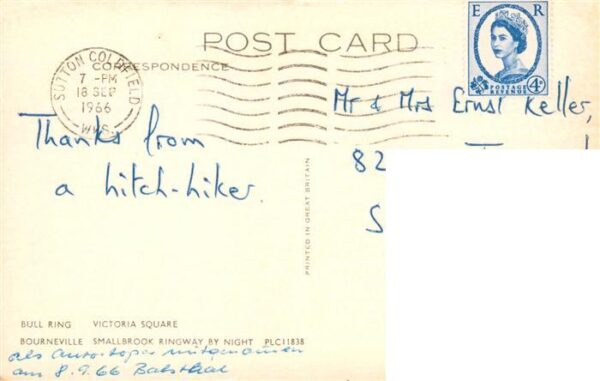 POST CARD
CORRESPONDENCE
SUTTON COLDFIELD
7 - PM
18 SEP
1966
E R
4D
POSTAGE
Mr & Mrs Ernst Keller,
82
S
Thanks from
a hitch-hiker.
PRINTED IN GREAT BRITAIN
BULL RING VICTORIA SQUARE
BOURNEVILLE SMALLBROOK RINGWAY BY NIGHT PLC11838
als Autostoper mitgenommen
am 8.9.66 Balsthal